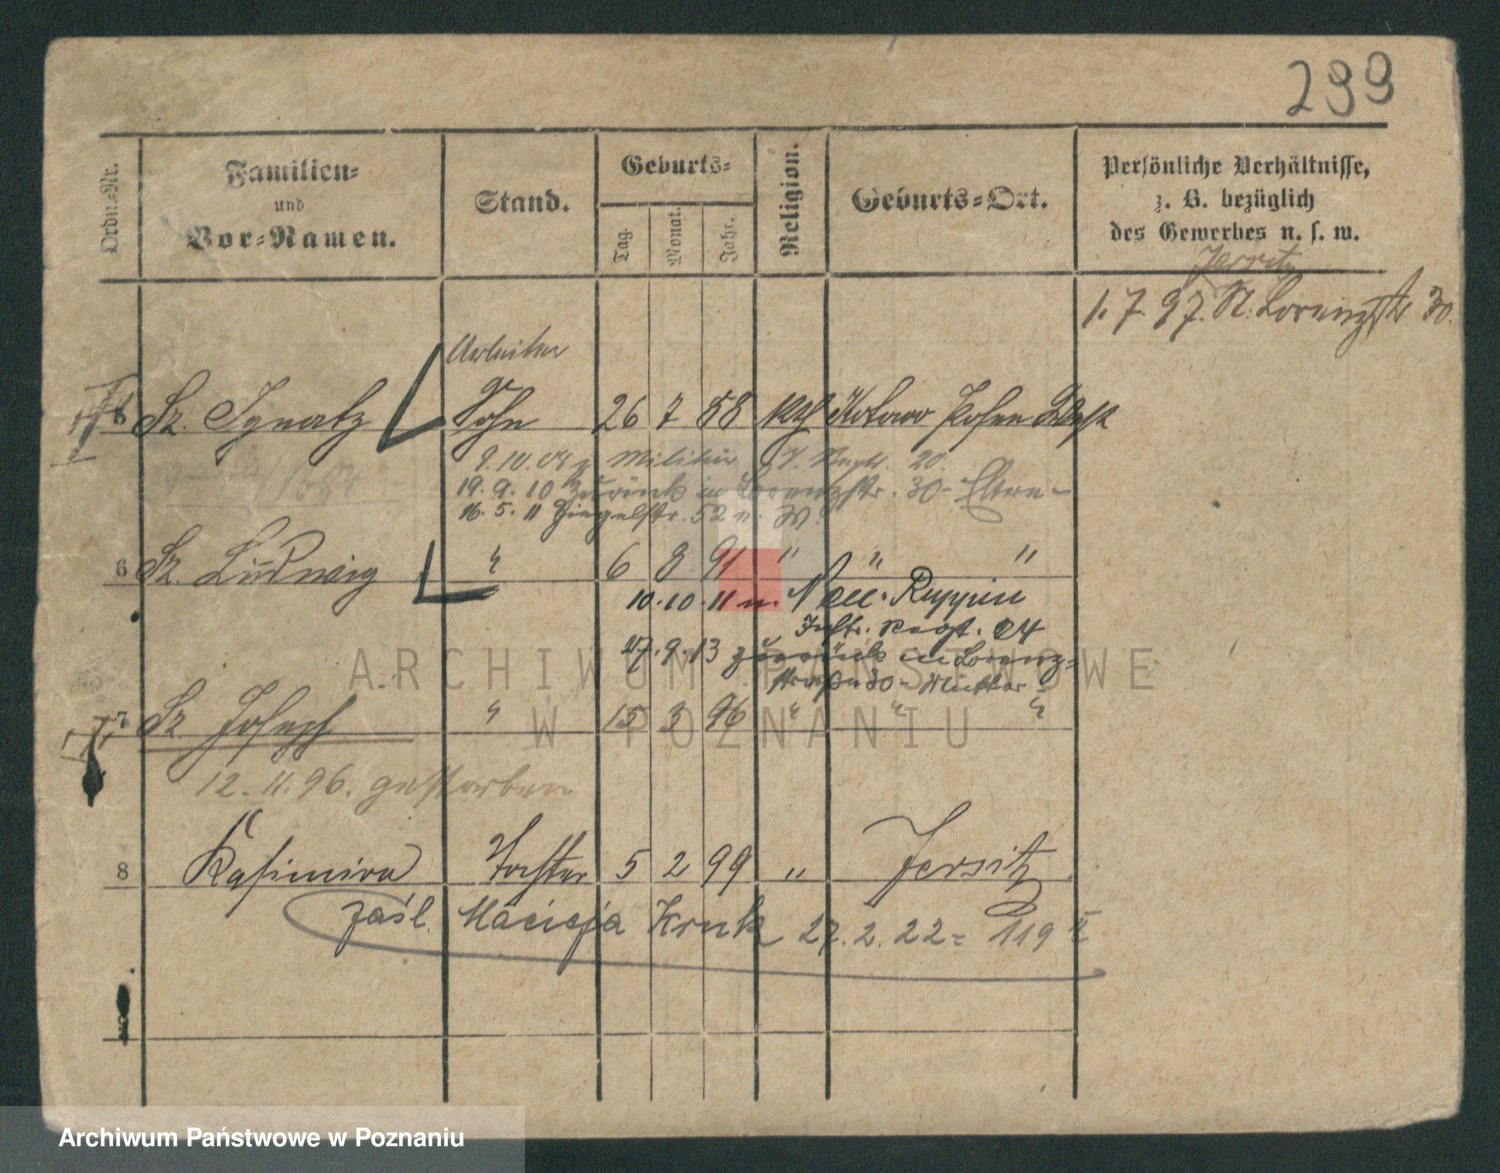 299
Ordn.-Nr.
Familien-
und
Vor-Namen.
Stand.
Geburts-
Tag.
Monat.
Jahr.
Religion.
Geburts-Ort.
Persönliche Verhältnisse,
z. B. bezüglich
des Gewerbes u. s. w.
Jersitz
1. 7. 97. St. Lorenzstr 30.
Arbeiter
5 Sz. Ignatz Sohn 26 7 88 kth Kotowo Posen West
9.10.09 z Militär 20.
19. 9. 10 zurück in Lorenzstr. 30 - Eltern -
16. 5. 11 Ziegelstr. 52 n. W.
6 Sz. Ludwig " 6 8 91 " " "
10.10.11 n. Neu-Ruppin
Inftr. Regt. 24
27.9.13 zurück in Lorenz-
straße 30 - Mutter -
7 Sz Joseph " 15 3 96 " " "
12. 11. 96. gestorben
8 Kasimira Tochter 5 2 99 " Jersitz
zaśl. Macieja Kruk 27. 2. 22 = 119 II
ARCHIWUM PAŃSTWOWE
W POZNANIU
Archiwum Państwowe w Poznaniu